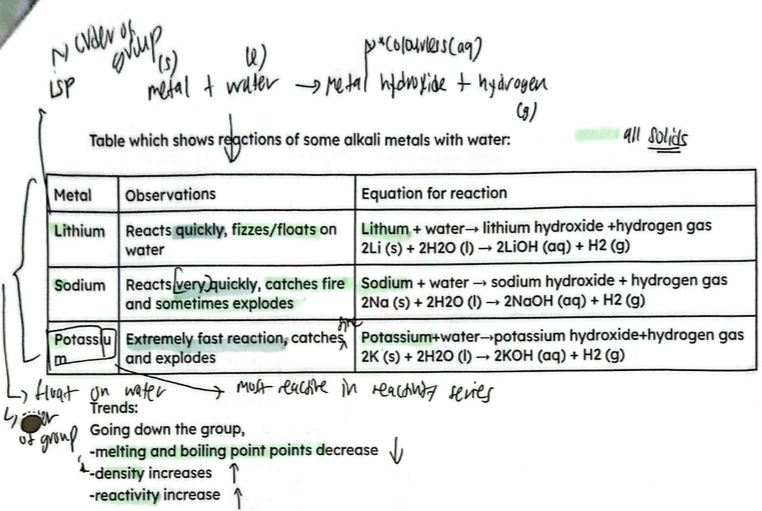 order of
group
LSP
(s) (l) *Colourless(aq)
metal + water → Metal hydroxide + hydrogen
(g)
Table which shows reactions of some alkali metals with water:
all solids
Metal Observations Equation for reaction
Lithium Reacts quickly, fizzes/floats on water Lithum + water→ lithium hydroxide +hydrogen gas
2Li (s) + 2H2O (l) → 2LiOH (aq) + H2 (g)
Sodium Reacts (very)quickly, catches fire and sometimes explodes Sodium + water → sodium hydroxide + hydrogen gas
2Na (s) + 2H2O (l) → 2NaOH (aq) + H2 (g)
Potassium Extremely fast reaction, catches fire and explodes Potassium+water→potassium hydroxide+hydrogen gas
2K (s) + 2H2O (l) → 2KOH (aq) + H2 (g)
float on water → most reactive in reactivity series
of group
Trends:
Going down the group,
-melting and boiling point points decrease ↓
-density increases ↑
-reactivity increase ↑